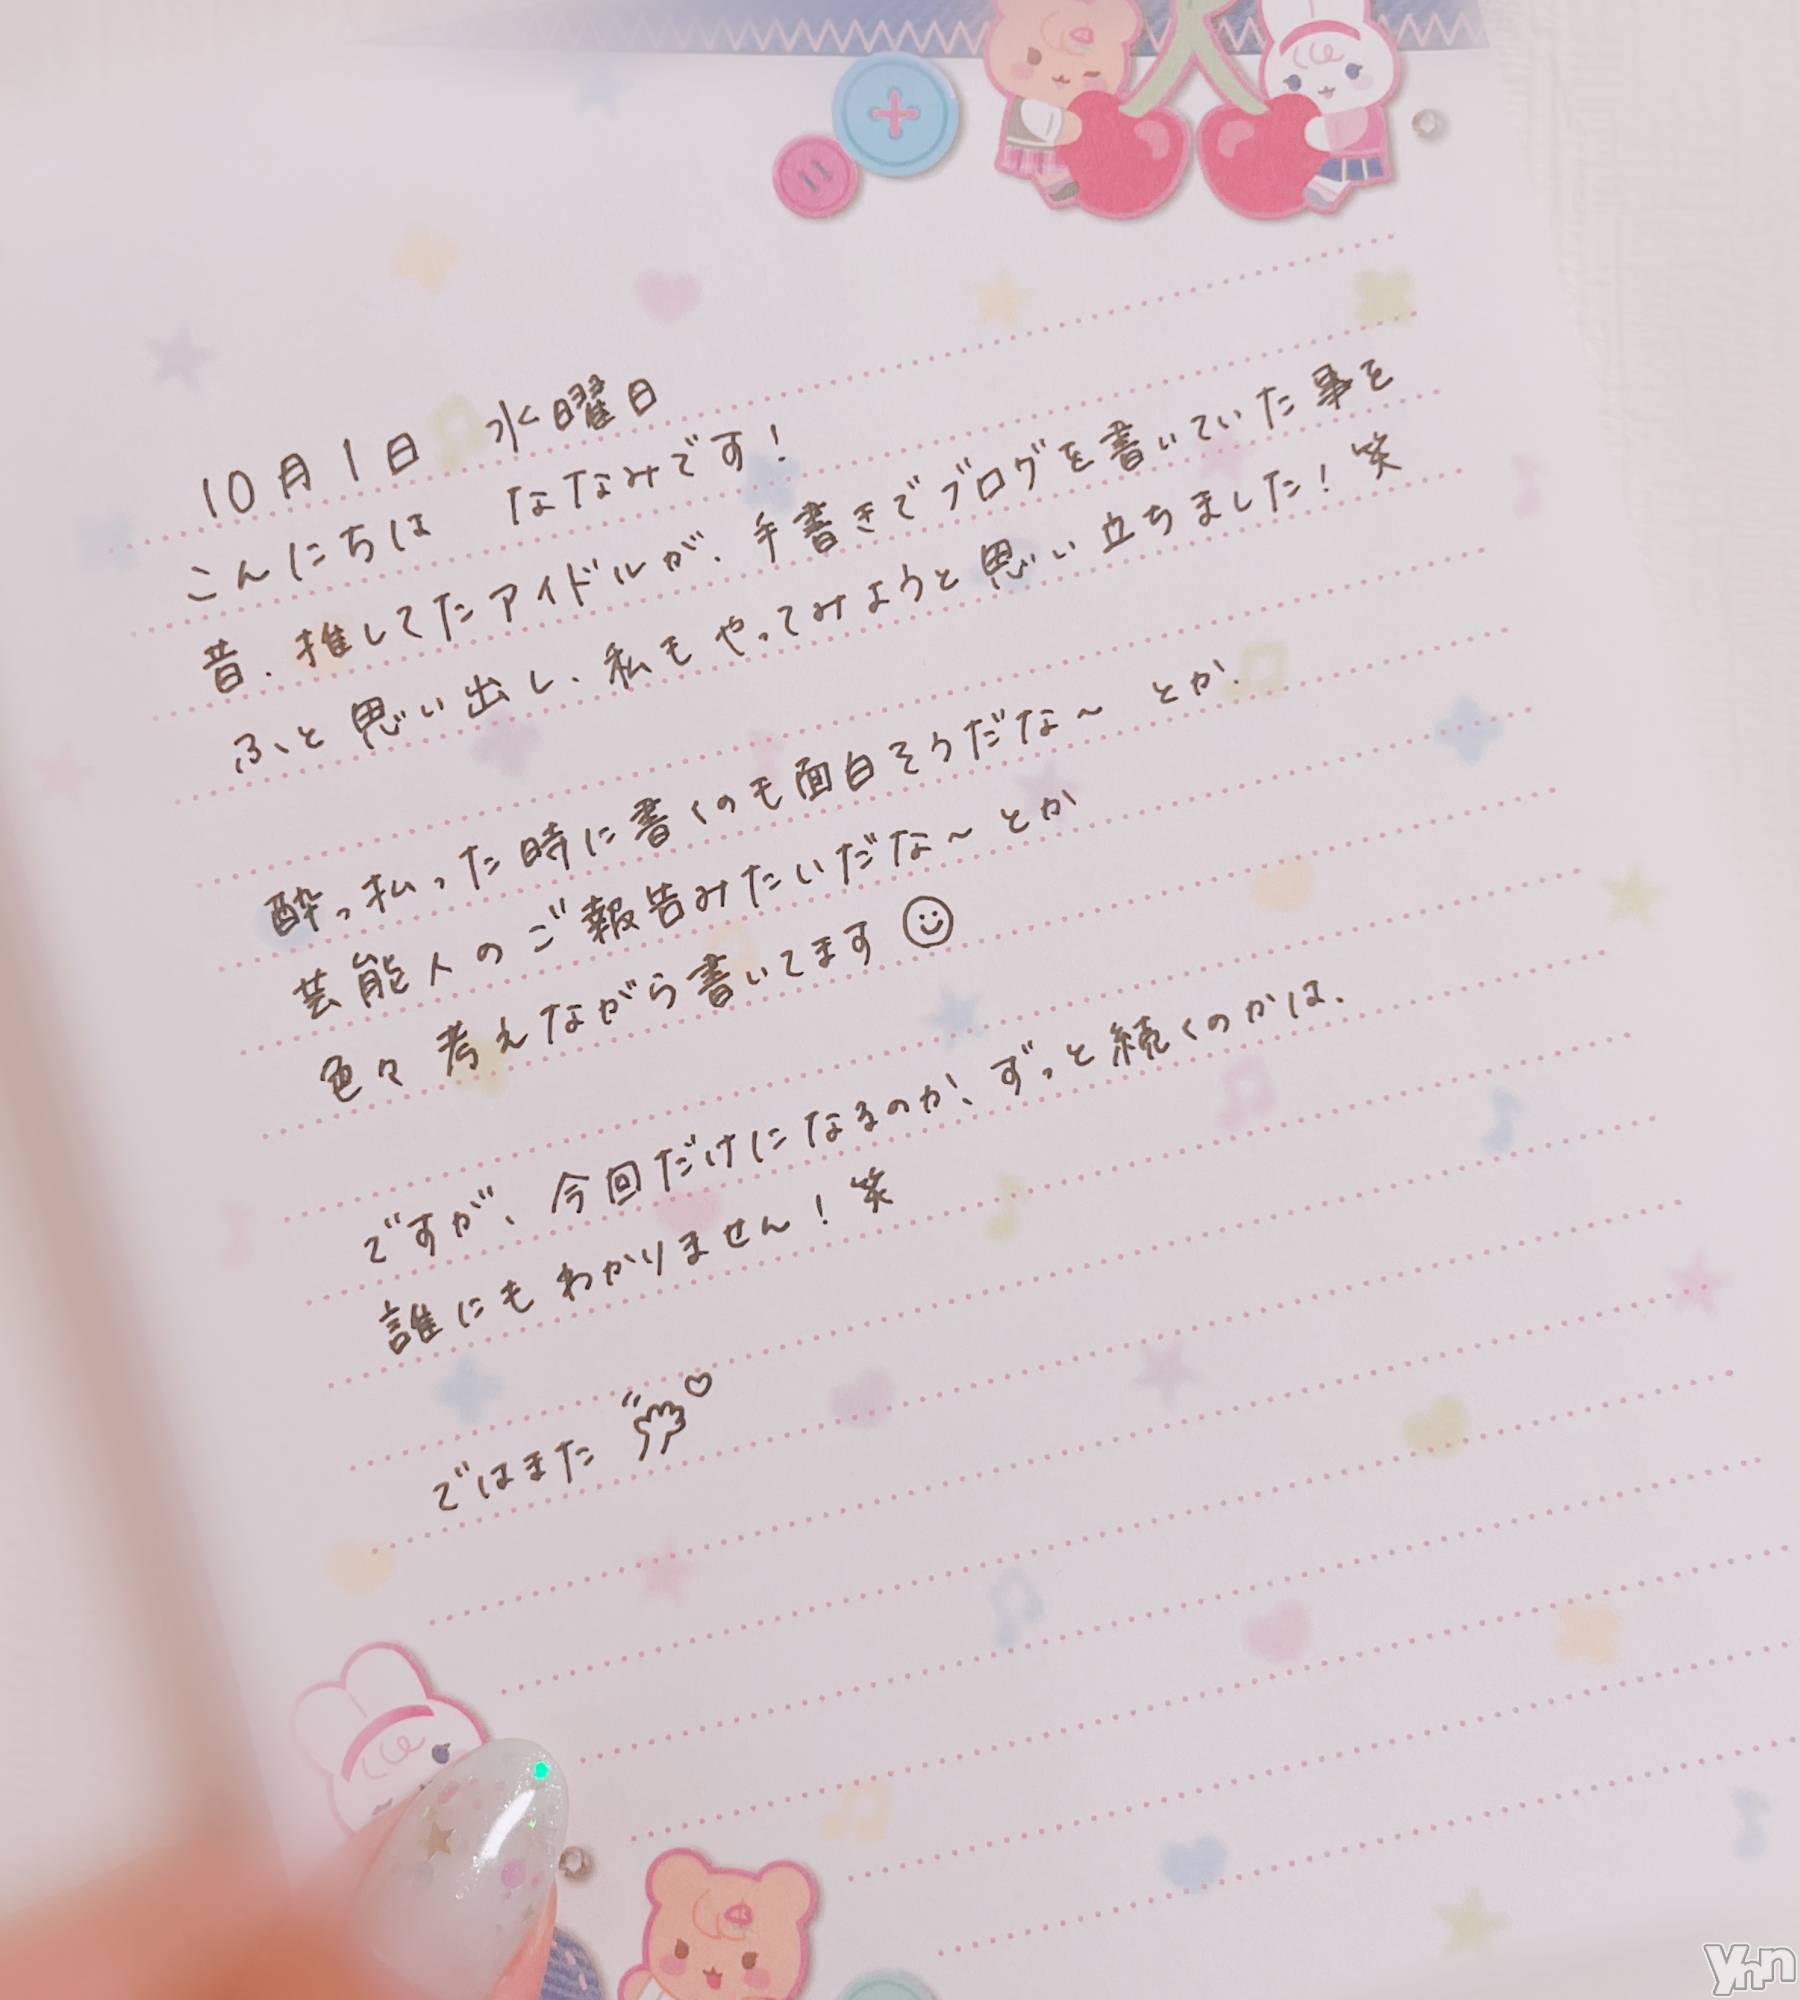 10月1日 水曜日
こんにちは ななみです!
昔、推してたアイドルが、手書きでブログを書いていた事を
ふと思い出し、私もやってみようと思い立ちました!笑
酔っ払った時に書くのも面白そうだな～ とか、
芸能人のご報告みたいだな～とか
色々考えながら書いてます☺
ですが、今回だけになるのか、ずっと続くのかは、
誰にもわかりません!笑
ではまた♡
ynn